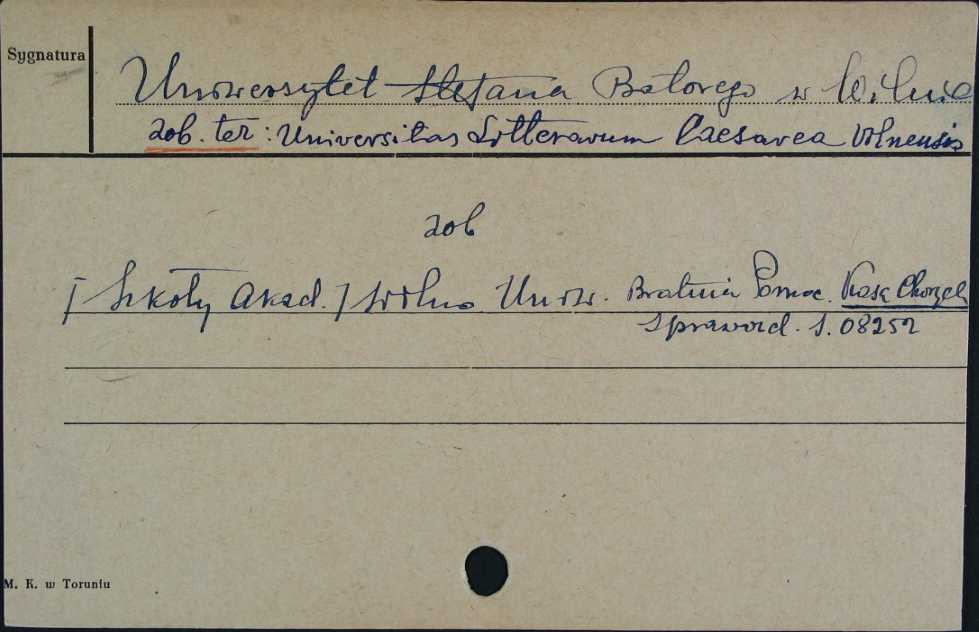 Sygnatura
Uniwersytet Stefana Batorego w Wilnie
zob. też: Universitas Litterarum Caesarea Vilnensis
zob
[Szkoły Akad.] Wilno Uniw. Bratnia Pomoc. Kasa Chorych
Sprawozd. S. 08252
M. K. w Toruniu